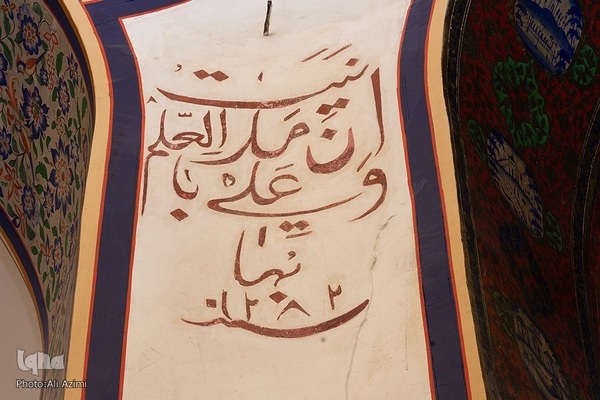 انا مدینت العلم
و علی با
بها
سنه ١٢٨٢
iqna
Photo:Ali Azimi